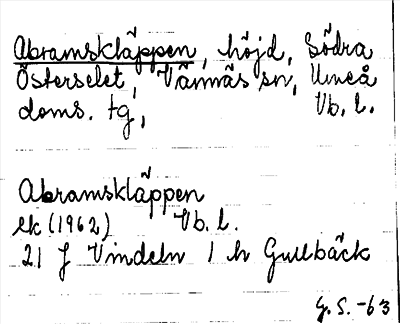 Abramskläppen, höjd, Södra
Österselet, Vännäs sn, Umeå
doms. tg, Vb. l.
Abramskläppen
ek (1962) Vb. l.
21 J Vindeln 1 h Gullbäck
G. S. -63